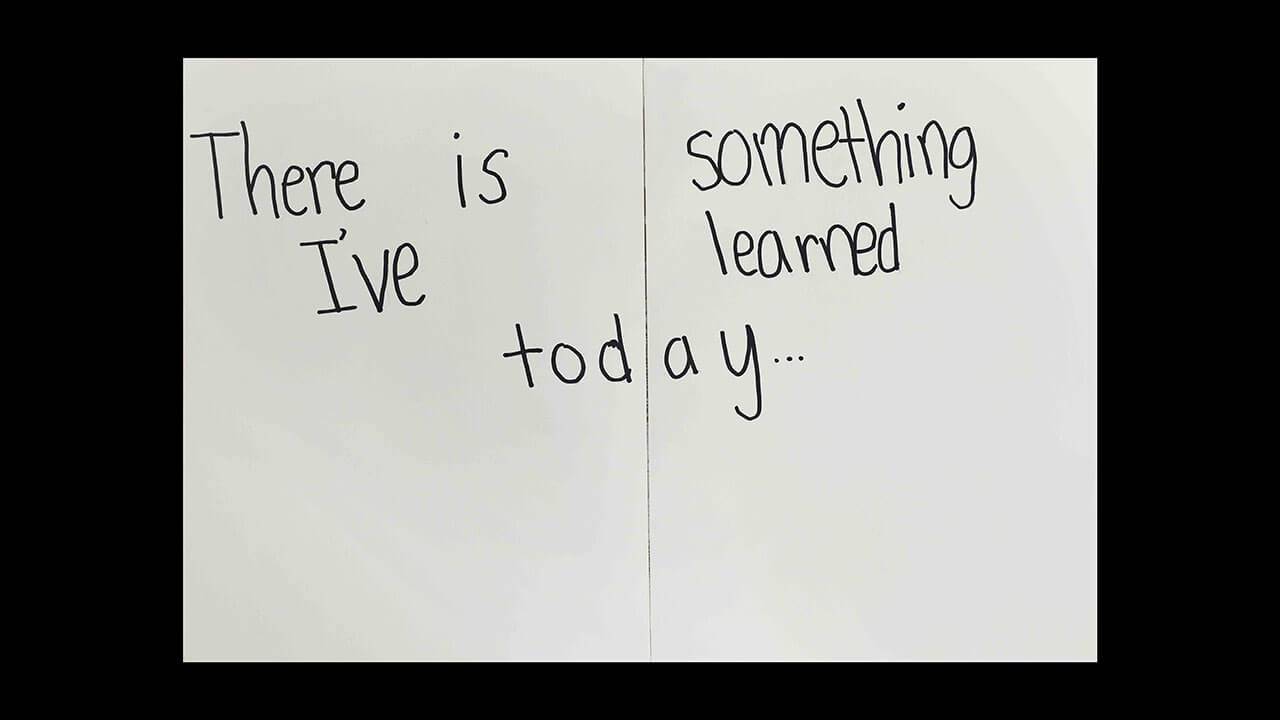 There is something
I've learned
today...